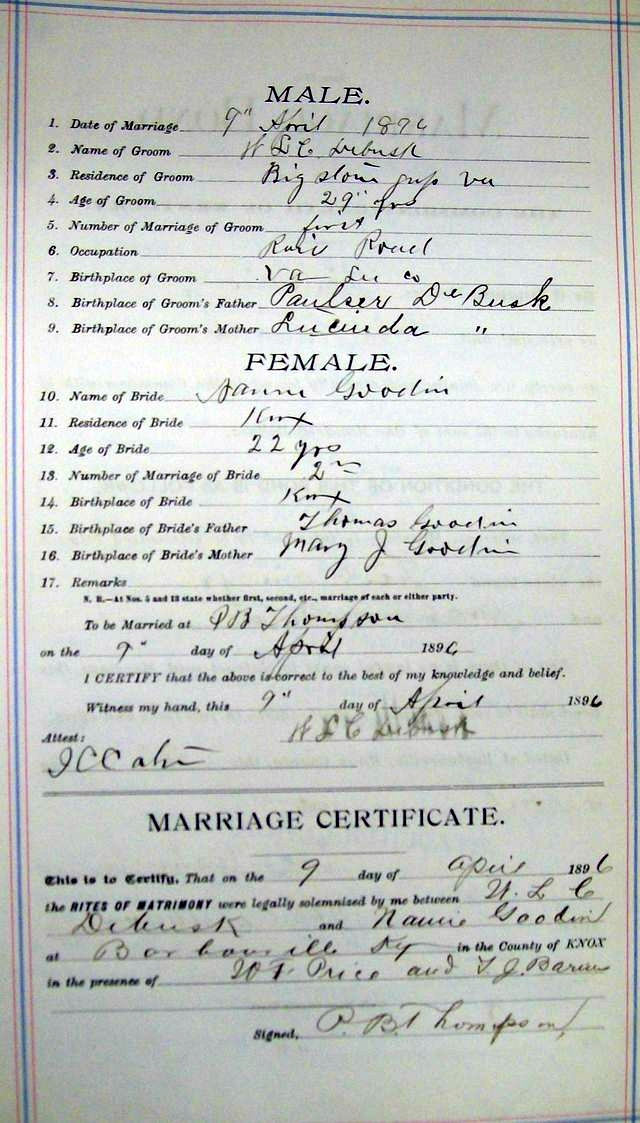 MALE.
1. Date of Marriage 9" April 1896
2. Name of Groom W L C Debusk
3. Residence of Groom Big stone gap va
4. Age of Groom 29" yrs
5. Number of Marriage of Groom first
6. Occupation Road
7. Birthplace of Groom Va Lee co
8. Birthplace of Groom's Father Paulser DeBusk
9. Birthplace of Groom's Mother Lucinda "
FEMALE.
10. Name of Bride Nannie Goodin
11. Residence of Bride Knox
12. Age of Bride 22 yrs
13. Number of Marriage of Bride 2nd
14. Birthplace of Bride Knox
15. Birthplace of Bride's Father Thomas Goodin
16. Birthplace of Bride's Mother Mary J Goodin
17. Remarks
N. B.—At Nos. 5 and 13 state whether first, second, etc., marriage of each or either party.
To be Married at P B Thompson
on the 9" day of April 1896
I CERTIFY that the above is correct to the best of my knowledge and belief.
Witness my hand, this 9" day of April 1896
W L C Debusk
Attest:
MARRIAGE CERTIFICATE.
This is to Certify, That on the 9 day of April 1896
the RITES OF MATRIMONY were legally solemnized by me between W. L C
Debusk and Nannie Goodin
at Barbourville Ky in the County of KNOX
in the presence of Price and T. J. Barnes
Signed, P. B. Thompson